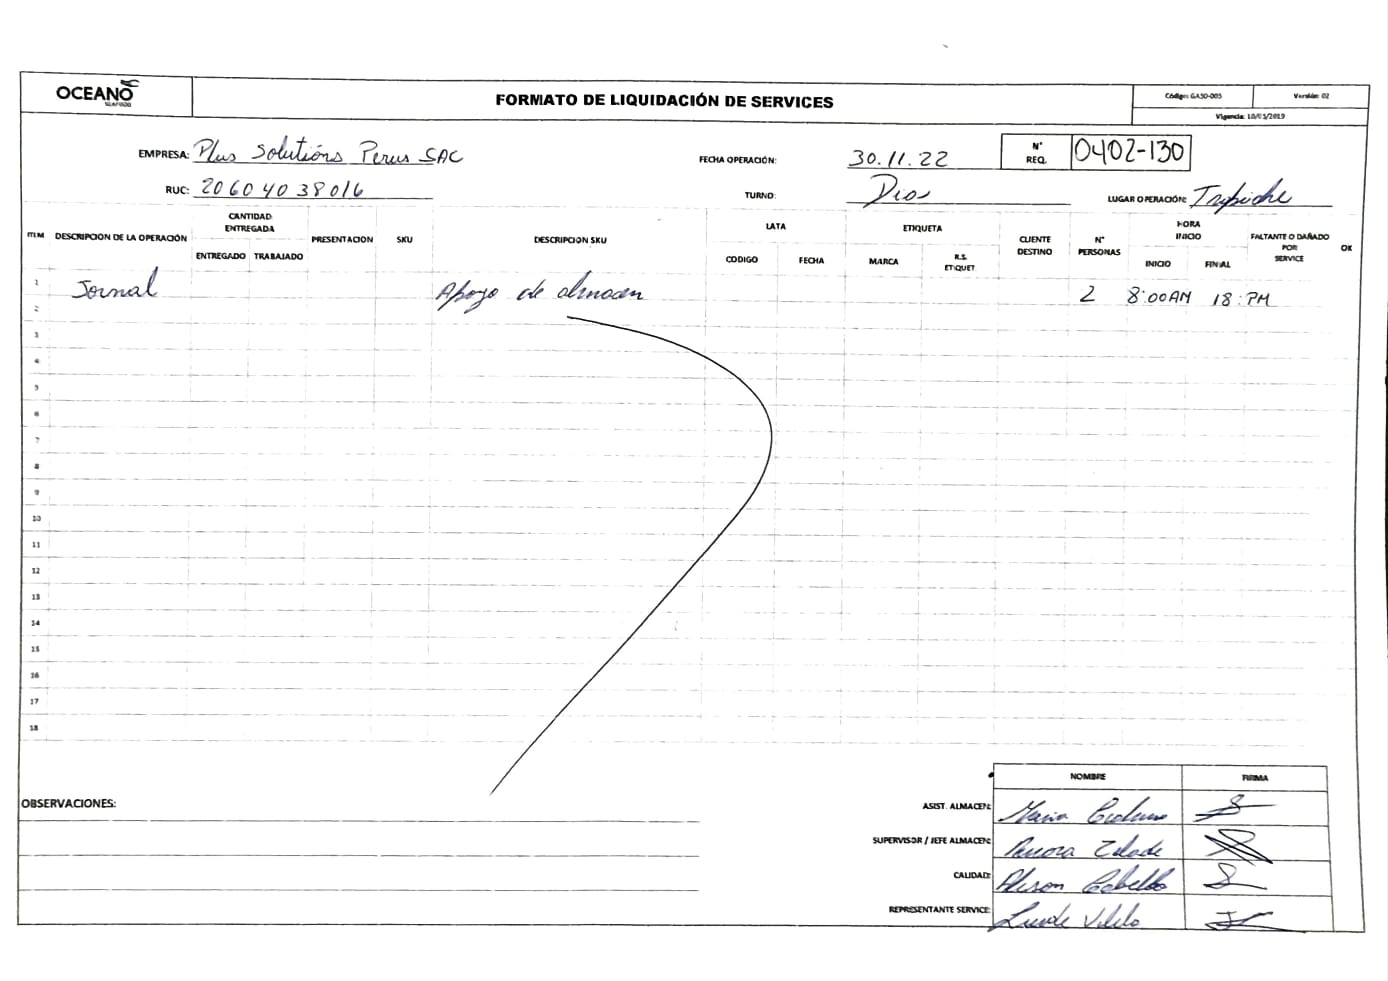 OCEANO
SEAFOOD
FORMATO DE LIQUIDACIÓN DE SERVICES
Código: GA50-005
Versión: 02
Vigencia: 10/05/2019
EMPRESA: Plus Solutións Perus SAC
FECHA OPERACIÓN: 30.11.22
N° REQ. 0402-130
RUC: 20604038016
TURNO: Dia
LUGAR OPERACIÓN: Trapiche
ITEM
DESCRIPCION DE LA OPERACIÓN
CANTIDAD ENTREGADA
ENTREGADO
TRABAJADO
PRESENTACION
SKU
DESCRIPCION SKU
LATA
CODIGO
FECHA
ETIQUETA
MARCA
R.S. ETIQUET
CLIENTE DESTINO
N° PERSONAS
HORA INICIO
INICIO
FINAL
FALTANTE O DAÑADO POR SERVICE
OK
1 Jornal Apoyo de almacen 2 8:00AM 18:PM
2
3
4
5
6
7
8
9
10
11
12
13
14
15
16
17
18
NOMBRE
FIRMA
OBSERVACIONES:
ASIST. ALMACEN: Maria
SUPERVISOR / JEFE ALMACEN:
CALIDAD: Alison Cabello
REPRESENTANTE SERVICE: